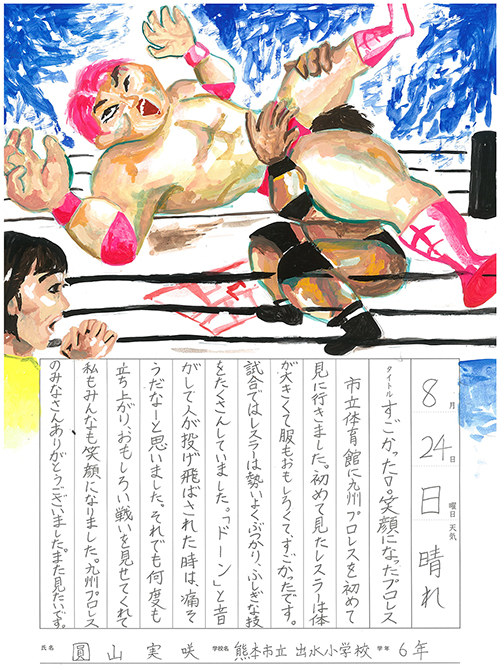 8月24日日曜日天気晴れ
タイトルすごかった。笑顔になったプロレス
市立体育館に九州プロレスを初めて
見に行きました。初めて見たレスラーは体
が大きくて服もおもしろくて、すごかったです。
試合ではレスラーは勢いよくぶつかり、ふしぎな技
をたくさんしていました。「ドーン」と音
がして人が投げ飛ばされた時は、痛そ
うだなーと思いました。それでも何度も
立ち上がり、おもしろい戦いを見せてくれて
私もみんなも笑顔になりました。九州プロレス
のみなさんありがとうございました。また見たいです。
氏名 圓山実咲 学校名 熊本市立出水小学校 学年 6年